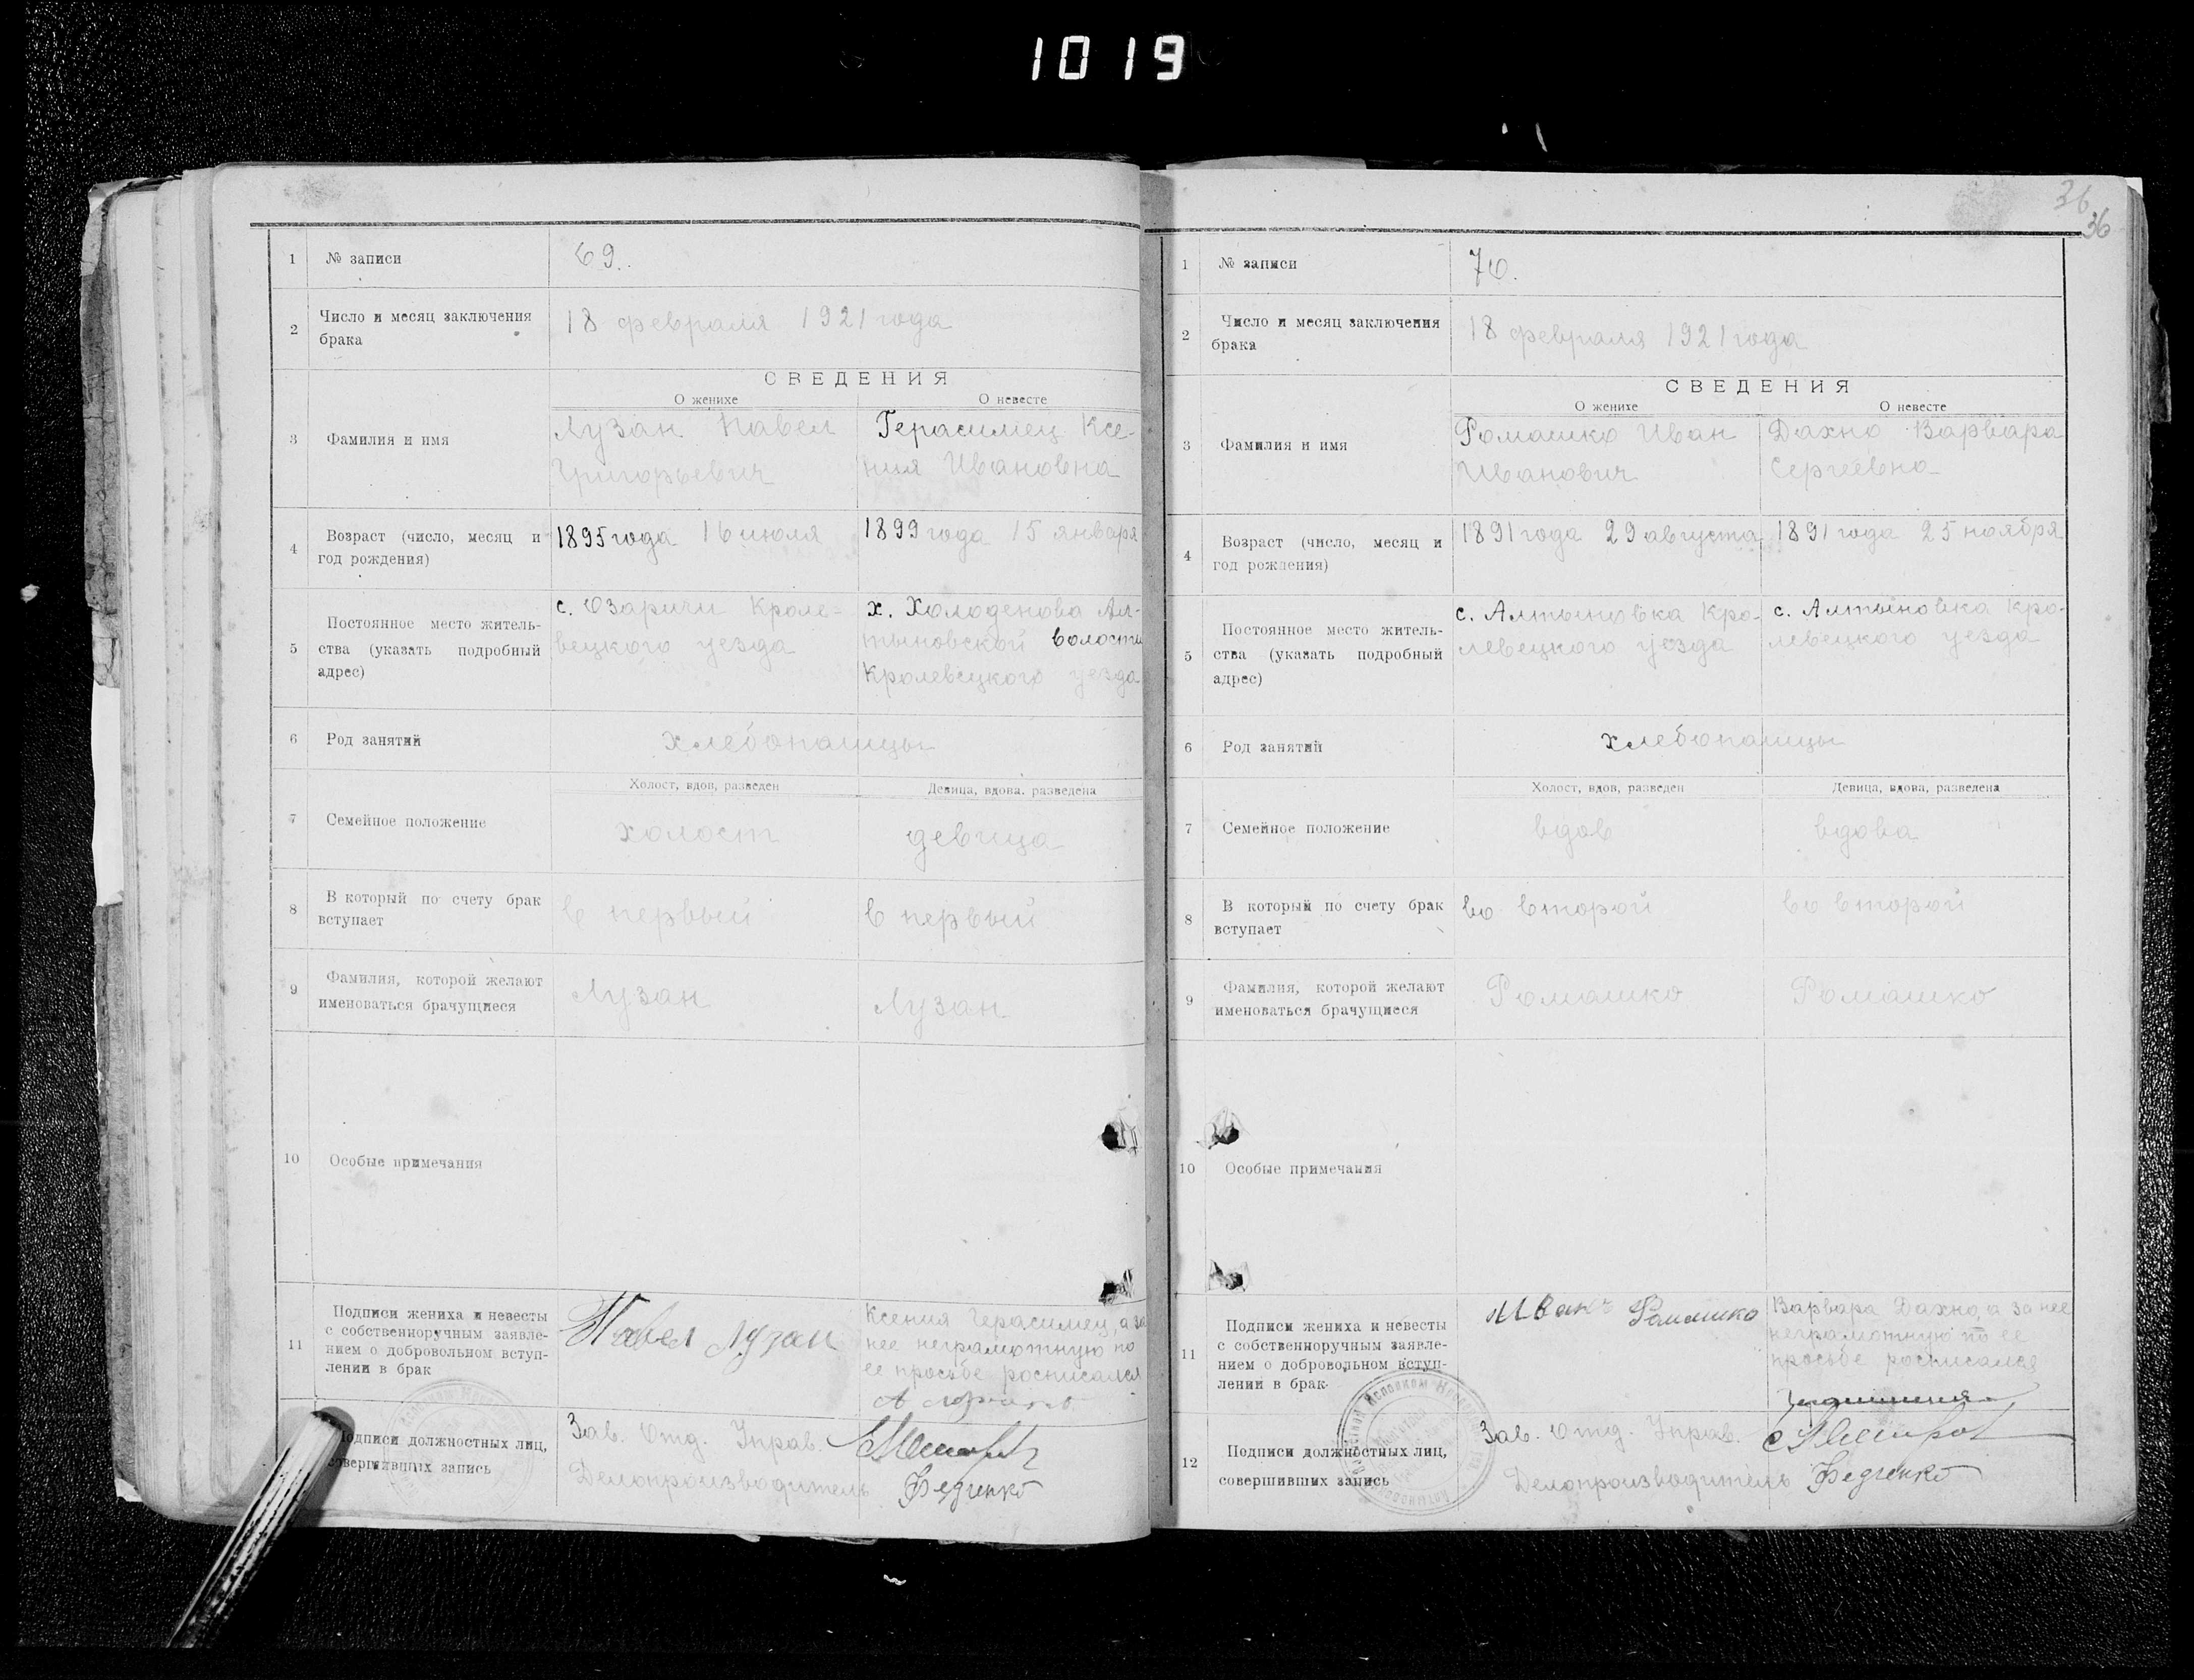 1019
1 № записи 69.
2 Число и месяц заключения брака 18 февраля 1921 года
СВЕДЕНИЯ
О женихе О невесте
3 Фамилия и имя Лузан Павел Герасимец Ксе-
Григорьевич ния Ивановна
4 Возраст (число, месяц и год рождения) 1895 года 16 июля 1899 года 15 января
5 Постоянное место житель-
ства (указать подробный
адрес)
с. Озаричи Кроле-
вецкого уезда
х. Холоденова Ал-
тыновской волости
Кролевецкого уезда
6 Род занятий хлебопашцы
Холост, вдов, разведен Девица, вдова, разведена
7 Семейное положение холост девица
8 В который по счету брак вступает в первый в первый
9 Фамилия, которой желают
именоваться брачущиеся
Лузан Лузан
10 Особые примечания
11 Подписи жениха и невесты
с собственноручным заявле-
нием о добровольном вступ-
лении в брак
Павел Лузан
Ксения Герасимец, а за
нее неграмотную по
ее просьбе росписался
12 Подписи должностных лиц,
совершивших запись
Зав. Отд. Управ.
Делопроизводитель Федченко
36
36
1 № записи 70.
2 Число и месяц заключения
брака
18 февраля 1921 года
СВЕДЕНИЯ
О женихе О невесте
3 Фамилия и имя Ромашко Иван Дахно Варвара
Иванович Сергеевна
4 Возраст (число, месяц и
год рождения)
1891 года 29 августа 1891 года 25 ноября
5 Постоянное место житель-
ства (указать подробный
адрес)
с. Алтыновка Кро-
левецкого уезда
с. Алтыновка Кро-
левецкого уезда
6 Род занятий хлебопашцы
Холост, вдов, разведен Девица, вдова, разведена
7 Семейное положение вдов вдова
8 В который по счету брак
вступает
во второй во второй
9 Фамилия, которой желают
именоваться брачущиеся
Ромашко Ромашко
10 Особые примечания
11 Подписи жениха и невесты
с собственноручным заявле-
нием о добровольном вступ-
лении в брак
Иван Ромашко
Варвара Дахно, а за нее
неграмотную по ее
просьбе росписался
12 Подписи должностных лиц,
совершивших запись
Зав. Отд. Управ.
Делопроизводитель Федченко